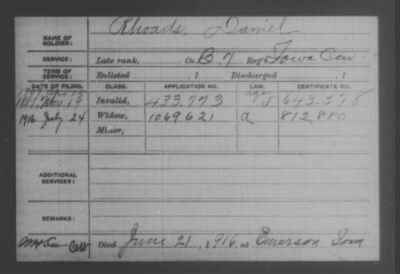 NAME OF SOLDIER: Rhoads, Daniel
SERVICE: Late rank, Co. B. 7 Reg't Iowa Cav.
TERM OF SERVICE: Enlisted , 1 Discharged , 1
DATE OF FILING. CLASS. APPLICATION NO. LAW. CERTIFICATE NO.
Nov 19 Invalid, 433,773 643,578
1916 July 24 Widow, 1069621 a 812,880
Minor,
ADDITIONAL SERVICES:
REMARKS:
Died June 21, 1916, at Emerson Iowa